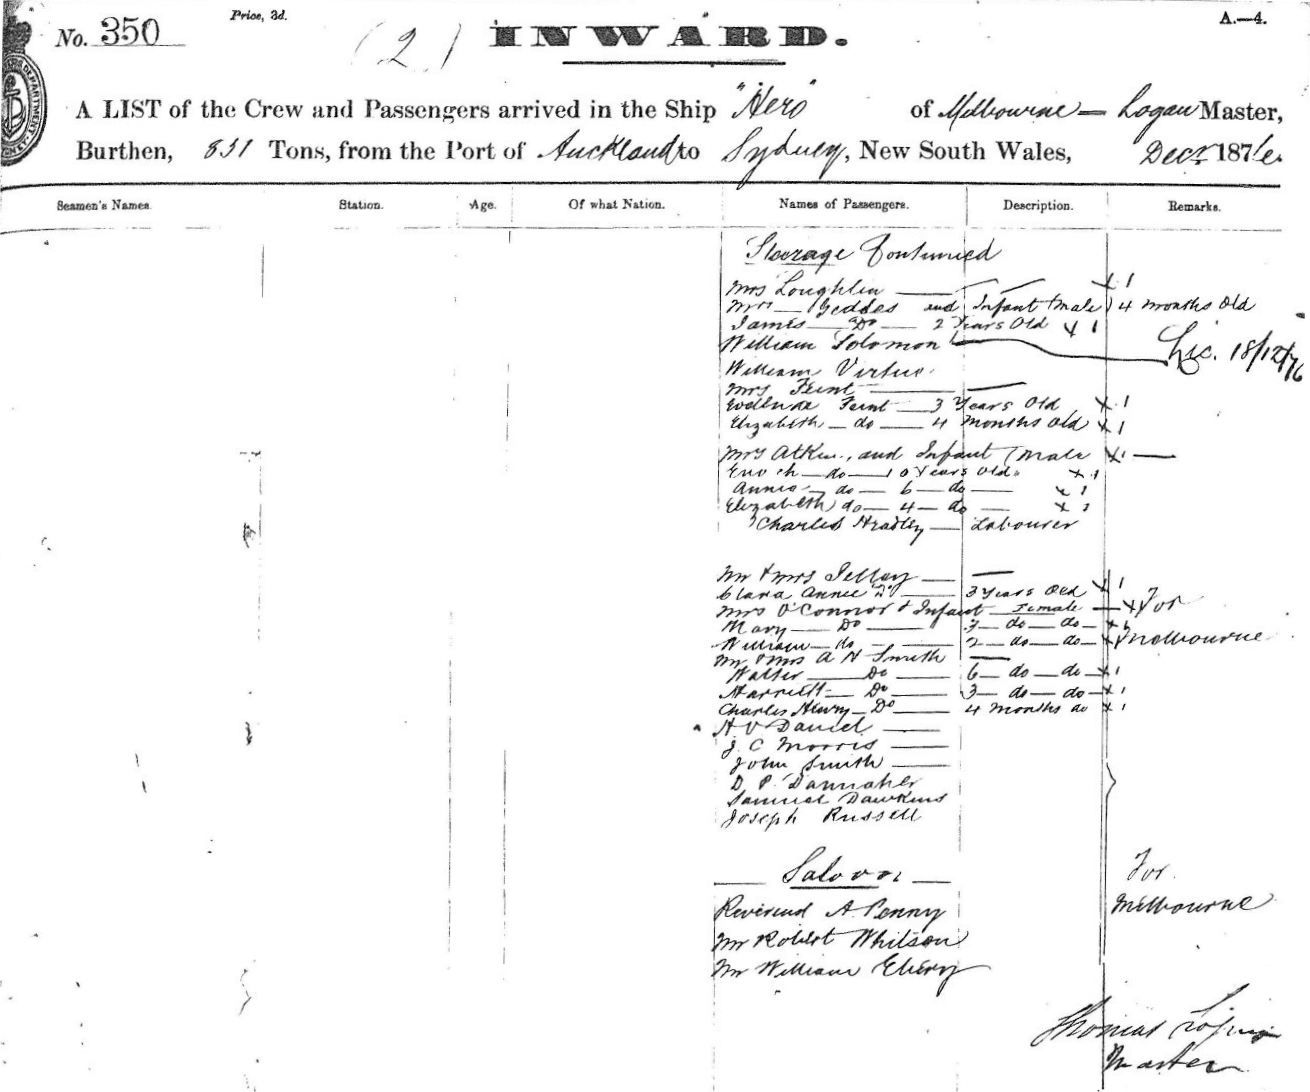 Price, 3d.
A.—4.
No. 350
(2)
INWARD.
A LIST of the Crew and Passengers arrived in the Ship "Hero" of Melbourne — Logan Master,
Burthen, 831 Tons, from the Port of Auckland to Sydney, New South Wales, Decr 1876.
Seamen's Names. Station. Age. Of what Nation. Names of Passengers. Description. Remarks.
Steerage Continued
Mrs Loughlin — — x 1
Mrs Geddes and Infant (Male) 4 months old
James — Do — 2 Years Old x 1
William Solomon Lic. 18/12/76
William Virtue
Mrs Feint — —
Evelena Feint — 3 Years Old x 1
Elizabeth — do — 4 months old x 1
Mrs Atkin, and Infant (Male x 1 —
Enoch — do — 10 Years old x 1
Annie — do — 6 — do — x 1
Elizabeth do — 4 — do — x 1
Charles Hradley — Labourer
Mr & Mrs Jellay — —
Clara Annie Do — 3 Years Old x 1
Mrs O'Connor & Infant Female — x For
Mary — Do — 3 — do — do — x 1
William — do — 2 — do — do — x Melbourne
Mr & Mrs A H Smith —
Walter — Do — 6 — do — do — x 1
Harriett — Do — 3 — do — do — x 1
Charles Henry — Do — 4 months do x 1
H V Daniel —
J C Morris —
John Smith —
D P Dannaher
Samuel Dawkins
Joseph Russell
— Saloon —
For
Reverend A Penny
Melbourne
Mr Robert Whitson
Mr William Ebery
Thomas Logan
Master